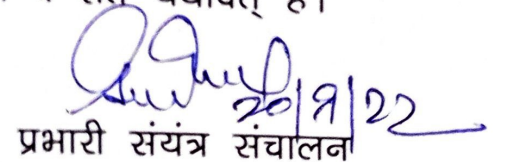 यथावत् है।
20/9/22
प्रभारी संयंत्र संचालन